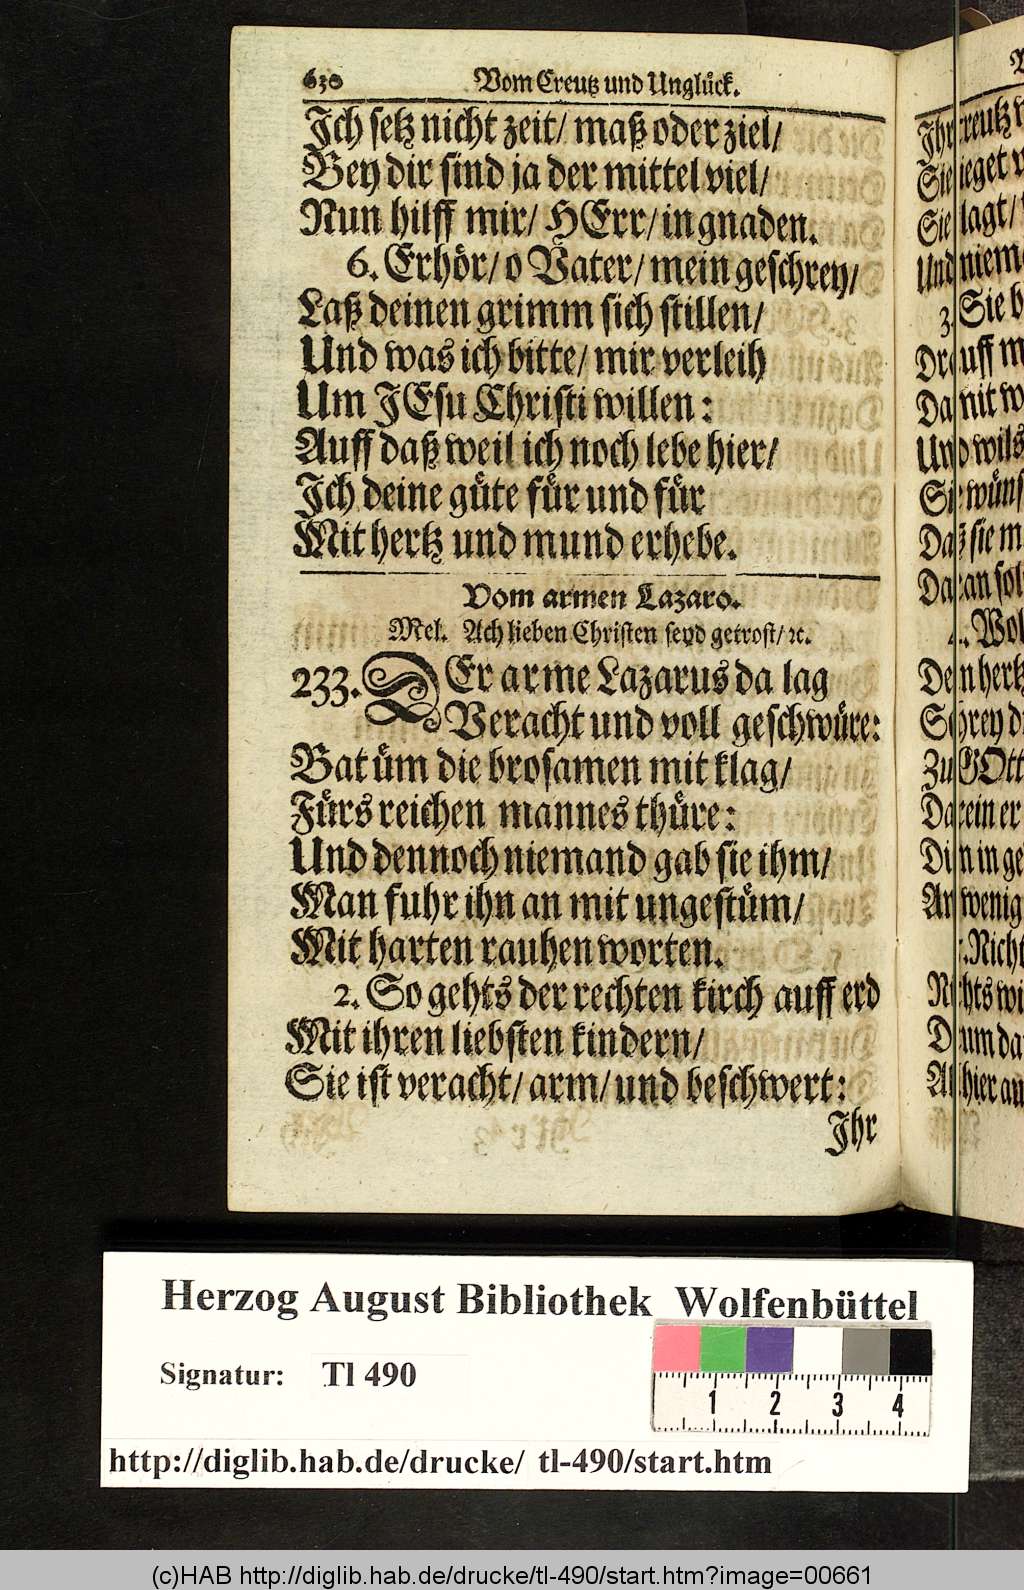 630 Vom Creutz und Unglück.
Ich setz nicht zeit/ maß oder ziel/
Bey dir sind ja der mittel viel/
Nun hilff mir/ HErr/ in gnaden.
6. Erhör/ o Vater/ mein geschrey/
Laß deinen grimm sich stillen/
Und was ich bitte/ mir verleih
Um JEsu Christi willen:
Auff daß weil ich noch lebe hier/
Ich deine güte für und für
Mit hertz und mund erhebe.
Vom armen Lazaro.
Mel. Ach lieben Christen seyd getrost/ ꝛc.
233. DEr arme Lazarus da lag
Veracht und voll geschwüre:
Bat üm die brosamen mit klag/
Fürs reichen mannes thüre:
Und dennoch niemand gab sie ihm/
Man fuhr ihn an mit ungestüm/
Mit harten rauhen worten.
2. So gehts der rechten kirch auff erd
Mit ihren liebsten kindern/
Sie ist veracht/ arm/ und beschwert:
Ihr
Herzog August Bibliothek Wolfenbüttel
Signatur: Tl 490
1 2 3 4
http://diglib.hab.de/drucke/ tl-490/start.htm
(c)HAB http://diglib.hab.de/drucke/tl-490/start.htm?image=00661